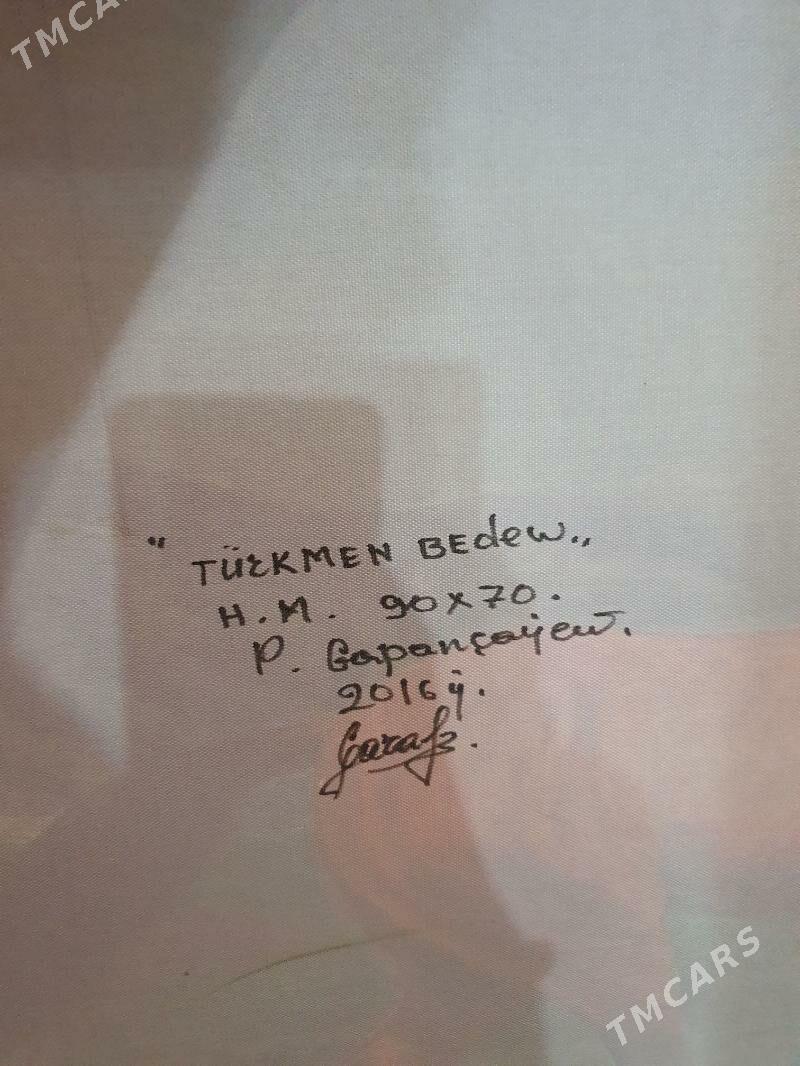 TMCARS
" TÜRKMEN BEdew.,,
H.M. 90x70.
P. Gapançaýew.
2016 ý.
TMCARS